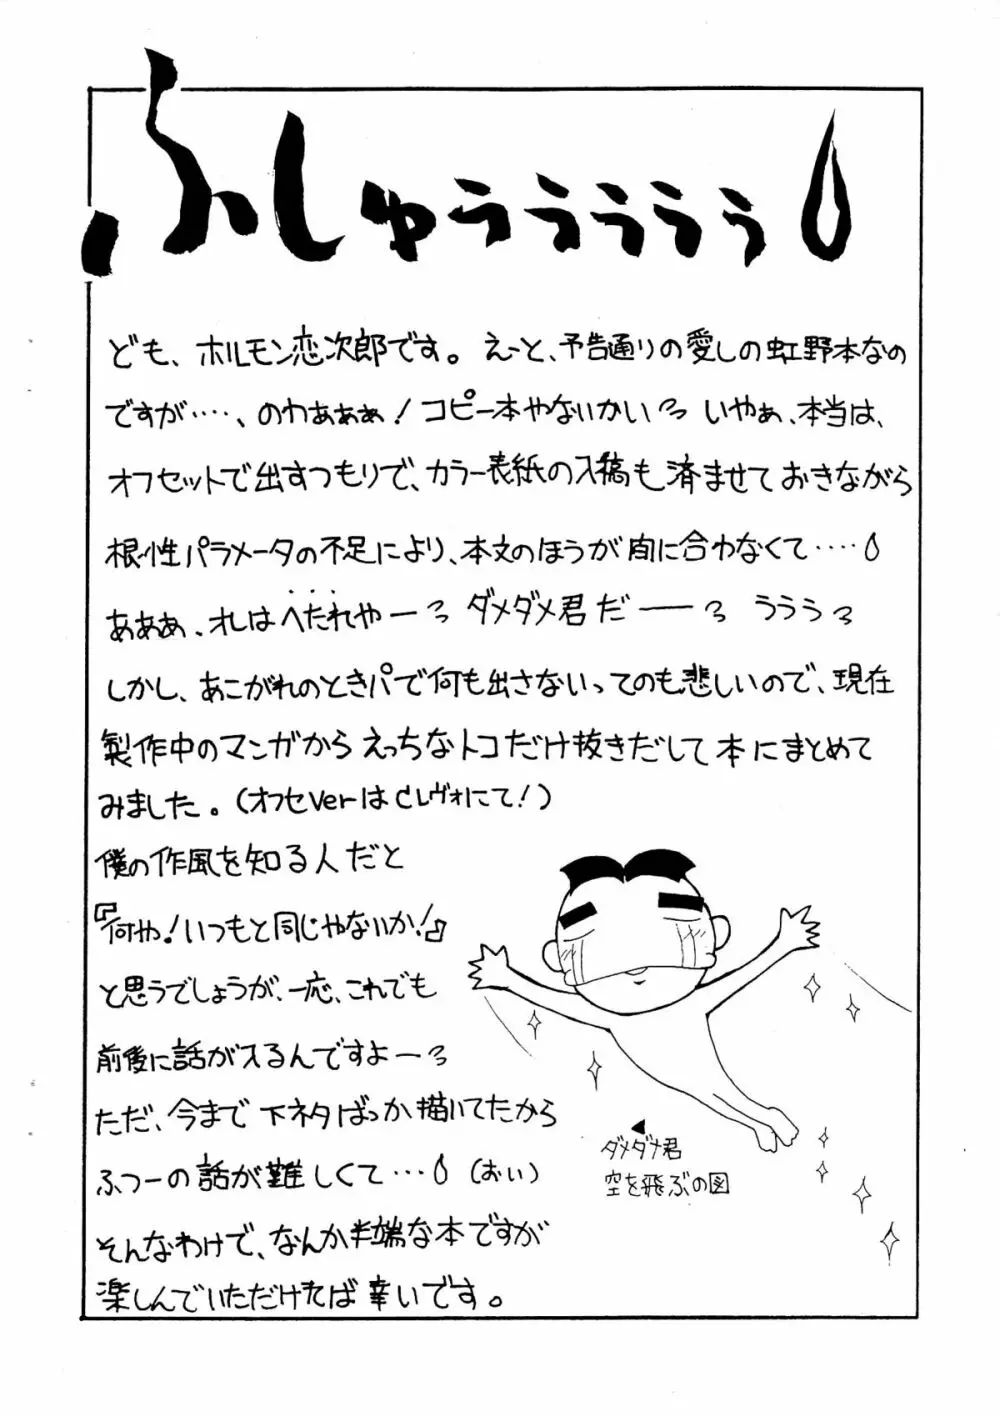 ふしゅぅぅぅぅぅ
ども、ホルモン恋次郎です。えーと、予告通りの愛しの虹野本なの
ですが‥‥、のわぁぁぁ！コピー本やないかいっ いやぁ、本当は、
オフセットで出すつもりで、カラー表紙の入稿も済ませておきながら
根性パラメータの不足により、本文のほうが間に合わなくて‥‥
あぁぁぁ、オレはへたれやーっ ダメダメ君だ――っ うぅぅっ
しかし、あこがれのときパで何も出さないってのも悲しいので、現在
製作中のマンガからえっちなトコだけ抜きだして本にまとめて
みました。(オフセverはCレヴォにて！)
僕の作風を知る人だと
『何や！いつもと同じゃないか！』
と思うでしょうが、一応、これでも
前後に話が入るんですよーっ
ただ、今まで下ネタばっか描いてたから
ふつーの話が難しくて‥‥(おぃ)
そんなわけで、なんか半端な本ですが
楽しんでいただければ幸いです。
◀
ダメダメ君
空を飛ぶの図